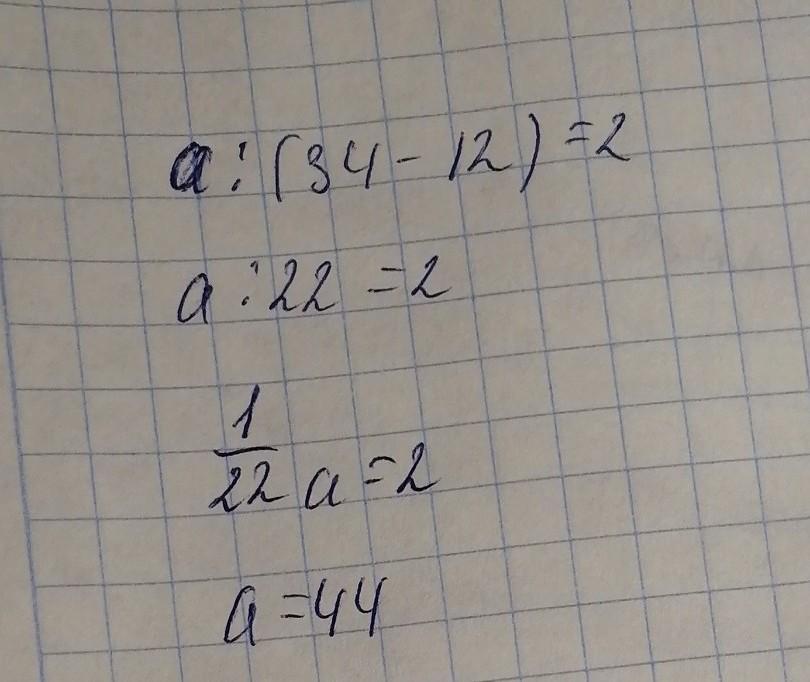 a : (34 - 12) = 2
a : 22 = 2
1/22 a = 2
a = 44